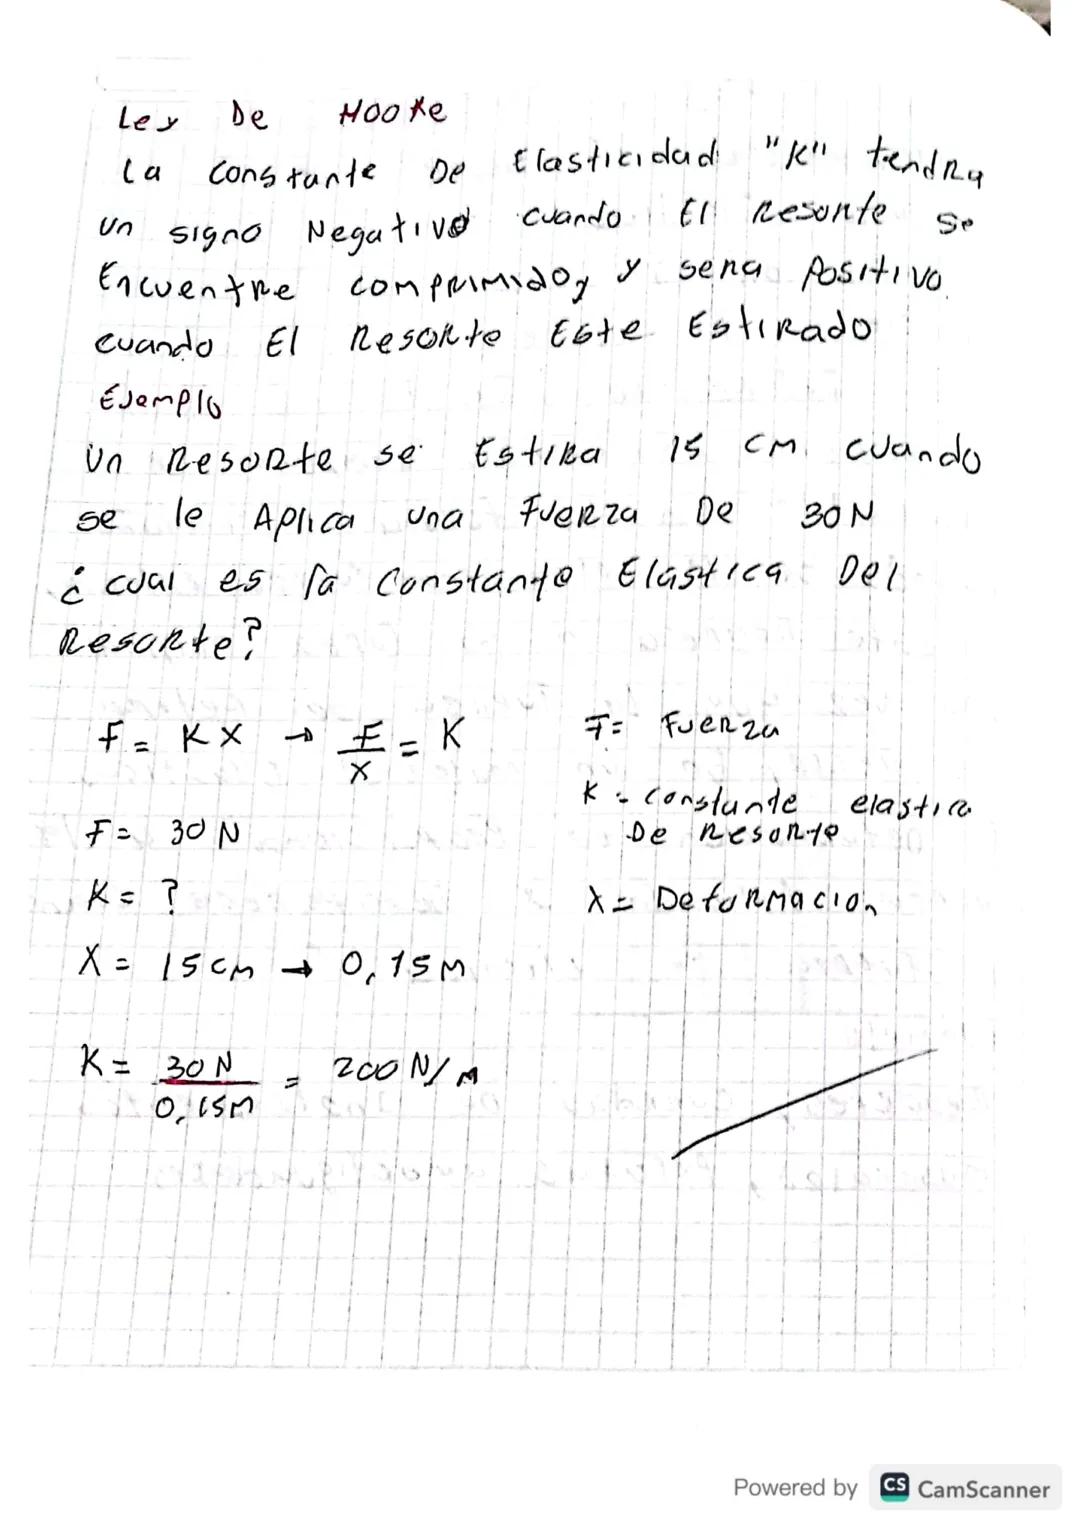 Ley De Hooke
La constante De Elasticidad "K" tendra
un signo Negativo cuando El Resorte se
Encuentre comprimido, y sera Positivo
cuando El Resorte Este Estirado
Ejemplo
Un Resorte se Estira 15 cm cuando
se le Aplica una Fuerza De 30 N
¿cual es la Constante Elastica Del
Resorte?
F = K X → F/X = K
F = Fuerza
K = constante elastica
De Resorte
X = Deformacion
F = 30 N
K = ?
X = 15 cm → 0,15 M
K = 30 N / 0,15 M = 200 N/M
Powered by CS CamScanner